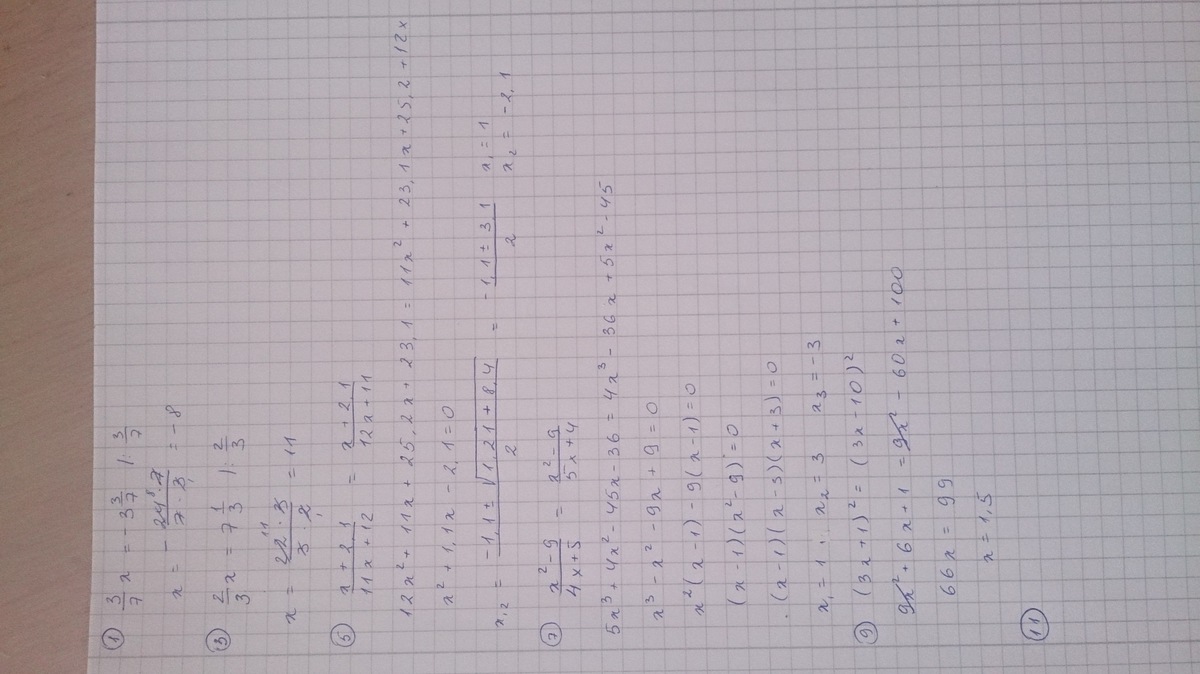 ① 3/7 x = -3 3/7 |: 3/7
x = - 24⁸·7 / 7·3₁ = -8
③ 2/3 x = 7 1/3 |: 2/3
x = 22¹¹·3 / 3·2₁ = 11
⑤ x+2,1 / 11x+12 = x+2,1 / 12x+11
12x² + 11x + 25,2x + 23,1 = 11x² + 23,1x + 25,2 + 12x
x² + 1,1x - 2,1 = 0
x₁,₂ = -1,1 ± √1,21 + 8,4 / 2 = -1,1 ± 3,1 / 2 x₁ = 1
x₂ = -2,1
⑦ x²-9 / 4x+5 = x²-9 / 5x+4
5x³ + 4x² - 45x - 36 = 4x³ - 36x + 5x² - 45
x³ - x² - 9x + 9 = 0
x²(x-1) - 9(x-1) = 0
(x-1)(x²-9) = 0
(x-1)(x-3)(x+3) = 0
x₁ = 1 x₂ = 3 x₃ = -3
⑨ (3x+1)² = (3x-10)²
9x² + 6x + 1 = 9x² - 60x + 100
66x = 99
x = 1,5
⑪